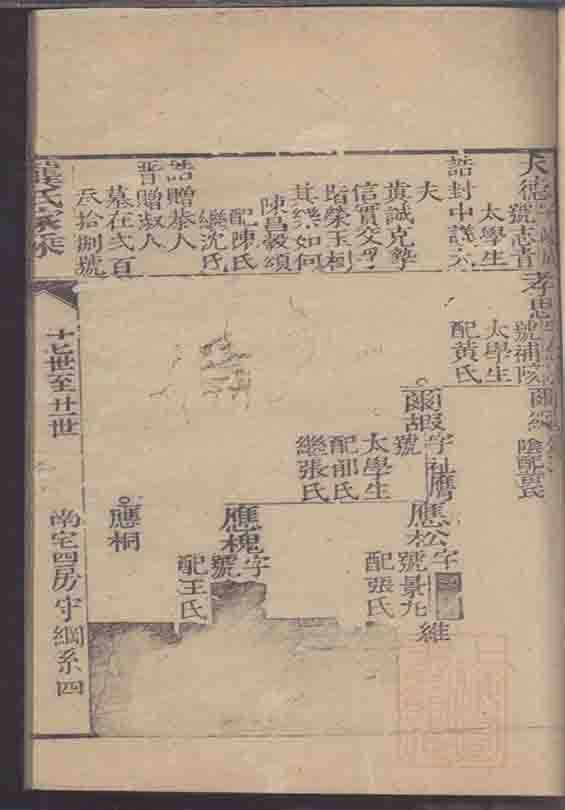 大德
號志青
太學生
誥封中議大
夫
貢誠克摯
信實交孚
階榮玉樹
其樂如何
陳昌穀頌
配陳氏
繼沈氏
誥贈恭人
晉贈淑人
墓在弍百
叁拾捌號
孝思
號補陔
太學生
配黃氏
爾嘏字祉
號
太學生
配郁氏
繼張氏
應松字
號景九
配張氏
維
應槐字
號
配王氏
應桐
龔氏家乘
十七世至廿一世
南宅四房守綱系四